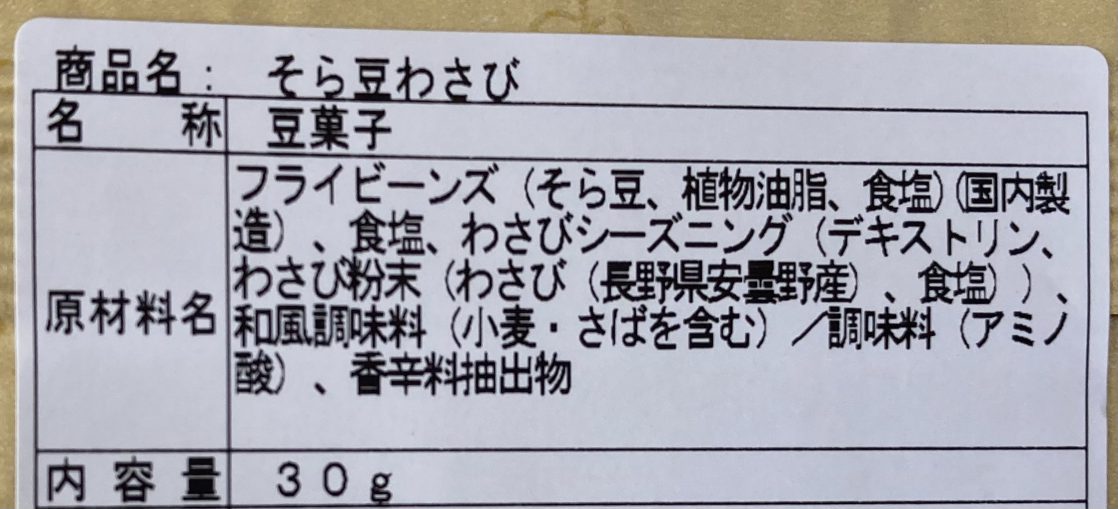 商品名： そら豆わさび
名称 豆菓子
原材料名 フライビーンズ（そら豆、植物油脂、食塩）（国内製
造）、食塩、わさびシーズニング（デキストリン、
わさび粉末（わさび（長野県安曇野産）、食塩））、
和風調味料（小麦・さばを含む）／調味料（アミノ
酸）、香辛料抽出物
内容量 30g